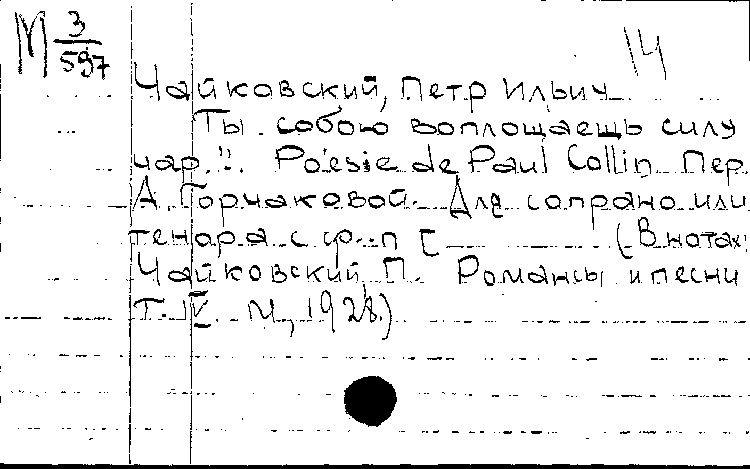 М 3/597
14
Чайковский, Петр Ильич
Ты собою воплощаешь силу
чар..". Poésie de Paul Collin Пер.
А. Горчаковой. Для сопрано или
тенора с ф.-п [ (В нотах:
Чайковский, П. Романсы и песни
Т. IV. М., 1928.)